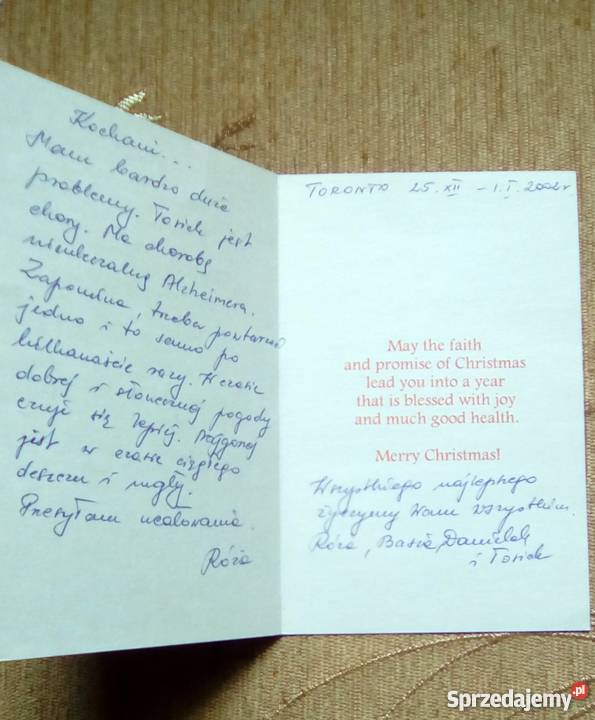 Kochani...
Mam bardzo duże
problemy. Tosiek jest
chory. Ma chorobę
nieuleczalną Alzheimera.
Zapomina, trzeba powtarzać
jedno i to samo po
kilkanaście razy. W czasie
dobrej i słonecznej pogody
czuje się lepiej. Najgorzej
jest w czasie ciągłego
deszczu i mgły.
Przesyłam ucałowania.
Róża
TORONTO 25.XII - 1.I.2002r
May the faith
and promise of Christmas
lead you into a year
that is blessed with joy
and much good health.
Merry Christmas!
Wszystkiego najlepszego
życzymy Wam wszystkim.
Róża, Basia, Danielek
i Tosiek
Sprzedajemy.pl